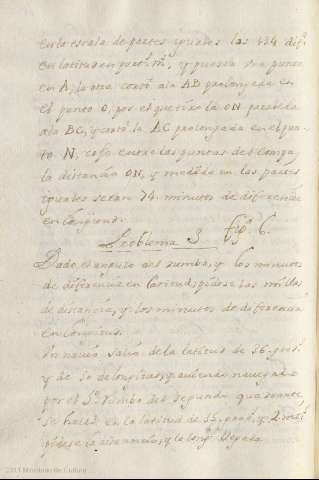 en la escala de partes yguales las 134 dif.ª
en latitud en part.s m.s, y puesta una punta
en A, la otra cortó ala AB prolongada en
el punto O, por el que tiro la ON paralela
ala BC, y cortó la AC prolongada en el pun
to N, cojo entre las puntas del compas
la distancia ON, y medida en las partes
yguales seran 74 minutos de diferencia
en longitud.
Problema 3 fig.ª 6.
Dado el angulo del rumbo, y los minutos
de diferencia en latitud, pidese las millas
de distancia, y los minutos de diferencia
en longitud.
Un navio salio de la latitud de 36. grad.s
y de 50 de longitud, y aviendo navegado
por el 3.º rumbo del segundo quadrante,
se halló en la latitud de 35. grad.s y 2 min.s
pidese la distancia, y la long.d llegada
2011 Ministerio de Cultura